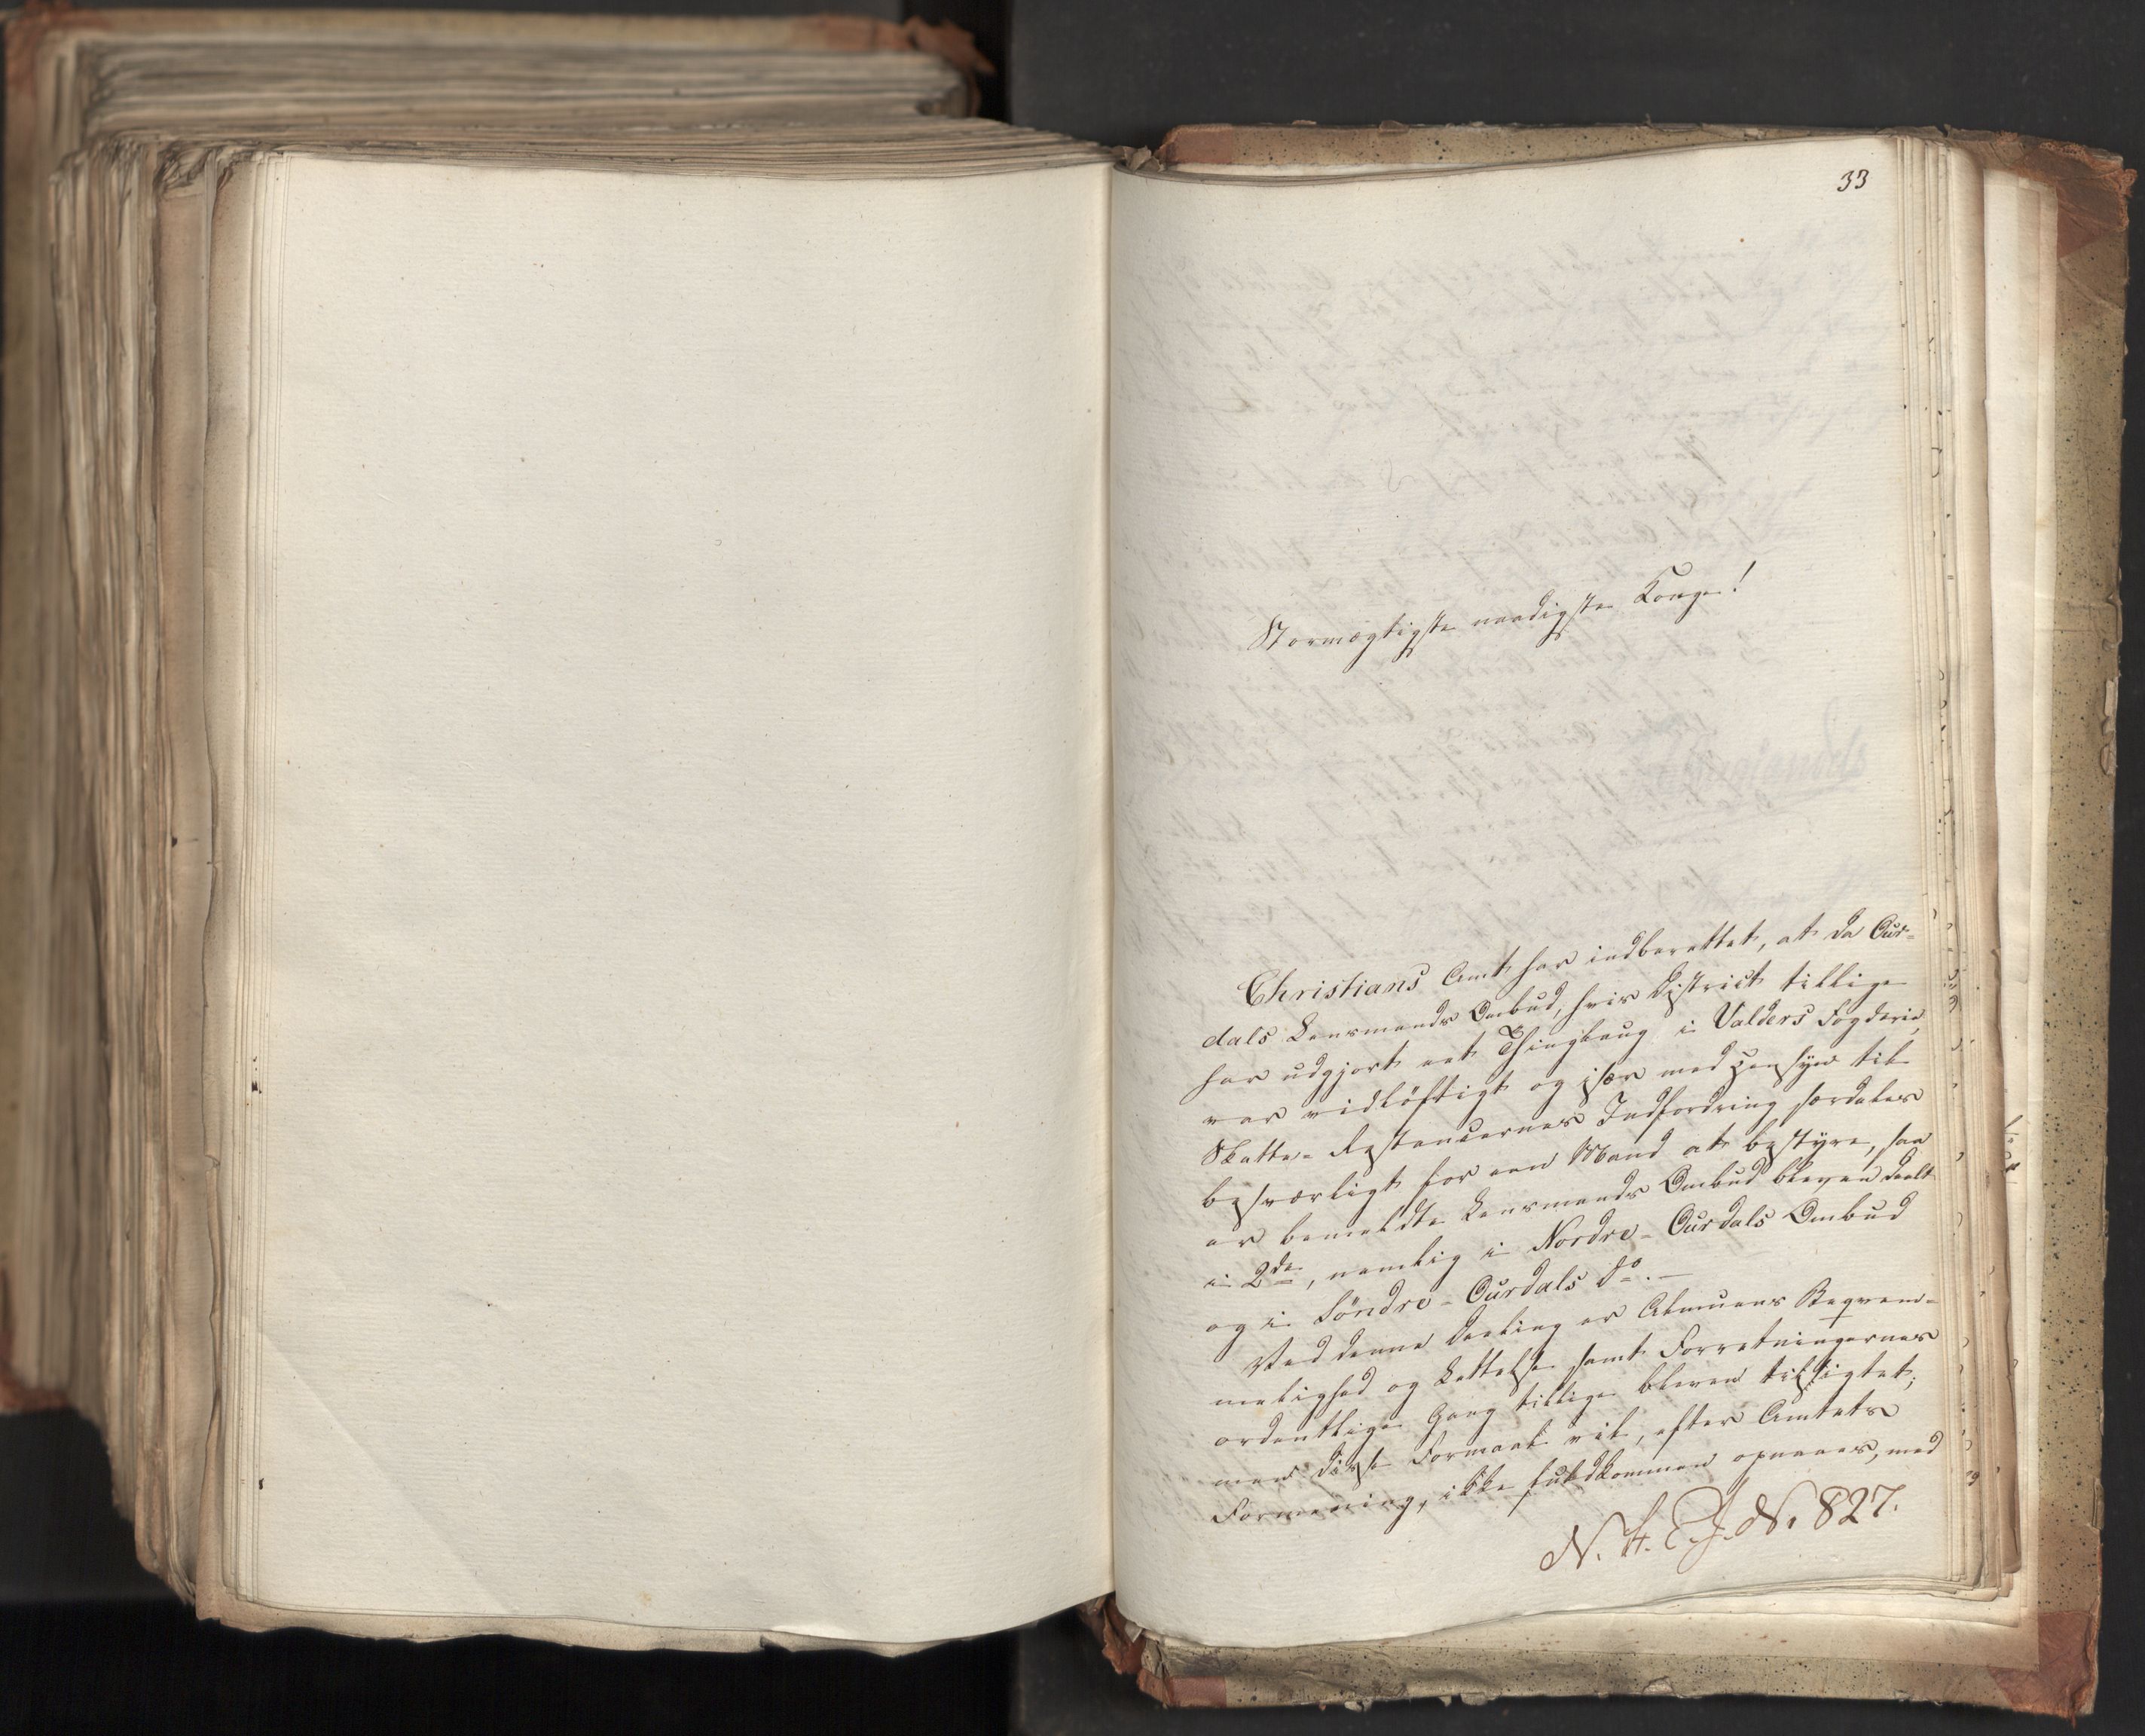 33
Stormægtigste naadigste Konge!
Christians Amt har indberettet, at da Our=
dals Lensmands Ombud, hvis District tillige
har udgjort eet Thinglaug i Valders Fogderie,
var vidløftigt og især med Hensyn til
Skatte-Restancernes Indfordring særdeles
besværligt for een Mand at bestyre, saa
er bemeldte Lensmands Ombud bleven deelt
i 2de, nemlig i Nordre-Ourdals Ombud
og i Søndre-Ourdals do. —
Ved denne Deeling er Almuens Beqvem=
melighed og Lettelse samt Forretningernes
ordentlige Gang tillige bleven tilsigtet;
men disse Formaal vil, efter Amtets
Formening, ikke fuldkommen opnaaes, med
N. 4. E. J. N. 827.